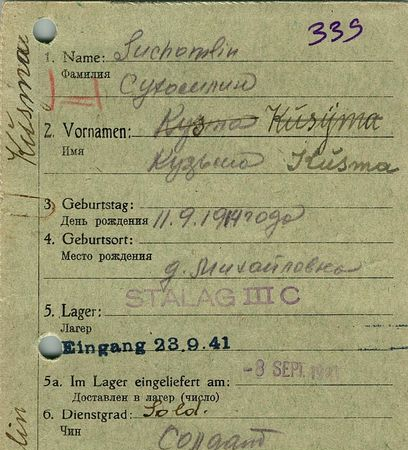 339
1. Name: Suchomlin
Фамилия
Сухомлин
2. Vornamen: Кузма Kusÿma
Имя
Кузьма Kusma
3. Geburtstag:
День рождения 11.9.1914 года
4. Geburtsort:
Место рождения
д. Михайловка
STALAG III C
5. Lager:
Лагерь
Eingang 23.9.41
5a. Im Lager eingeliefert am: -8 SEPT. 1941
Доставлен в лагер (число)
6. Dienstgrad: Sold.
Чин
Солдат
Kusma
lin